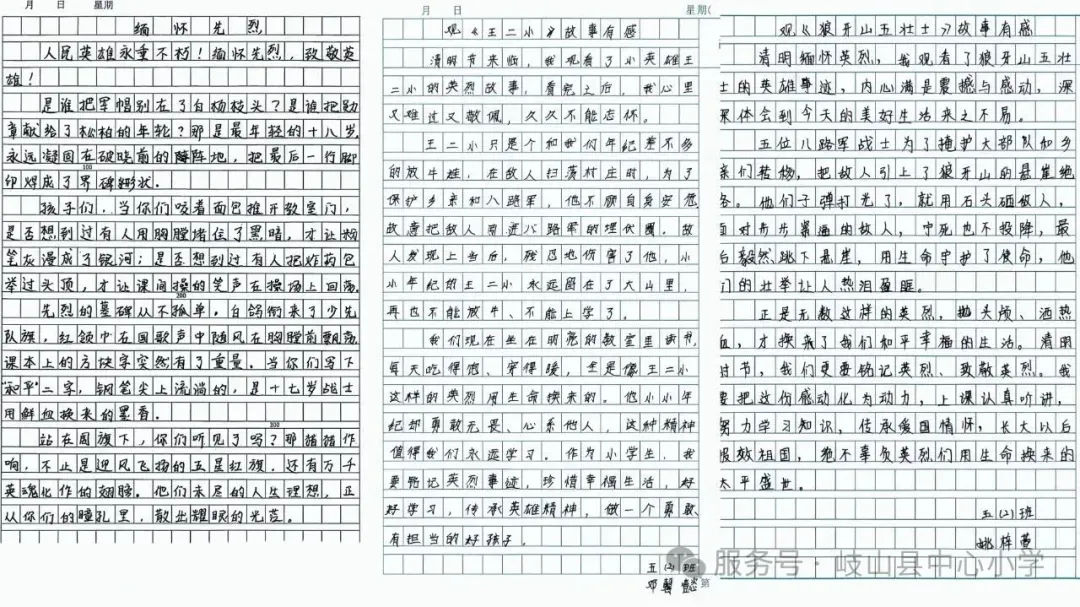 月 日 星期
缅怀先烈
人民英雄永垂不朽！缅怀先烈，致敬英
雄！
是谁把军帽别在了白杨枝头？是谁把勋
章献给了松柏的年轮？那是最年轻的十八岁，
永远凝固在破晓前的阵地，把最后一行脚
100
印焊成了界碑的形状。
孩子们，当你们咬着面包推开教室门，
是否想到过有人用胸膛堵住了黑暗，才让粉
笔灰漫成了银河；是否想到过有人把炸药包
举过头顶，才让课间操的笑声在操场上回荡。
200
先烈的墓碑从不孤单。白鸽衔来了少先
队旗，红领巾在国歌声中随风在胸膛前飘荡，
课本上的方块字突然有了重量。当你们写下
"和平"二字，钢笔尖上流淌的，是十七岁战士
用鲜血换来的墨香。
300
站在国旗下，你们听见了吗？那猎猎作
响，不止是迎风飞扬的五星红旗，还有万千
英魂化作的翅膀。他们未尽的人生理想，正
从你们的瞳孔里，散出耀眼的光芒。
月 日 星期
观《王二小》故事有感
清明节来临，我观看了小英雄王
二小的英烈故事，看完之后，我心里
又难过又敬佩，久久不能忘怀。
王二小只是个和我们年纪差不多
的放牛娃，在敌人扫荡村庄时，为了
保护乡亲和八路军，他不顾自身安危
故意把敌人带进八路军的埋伏圈，敌
人发现上当后，残忍地伤害了他，小
小年纪的王二小永远留在了大山里，
再也不能放牛、不能上学了。
我们现在坐在明亮的教室里读书，
每天吃得饱、穿得暖，全是像王二小
这样的英烈用生命换来的。他小小年
纪却勇敢无畏、心系他人，这种精神
值得我们永远学习。作为小学生，我
要铭记英烈事迹，珍惜幸福生活，好
好学习，传承英雄精神，做一个勇敢
有担当的好孩子。
五(2)班
邓馨懿
第
观《狼牙山五壮士》故事有感
清明缅怀英烈，我观看了狼牙山五壮
士的英雄事迹，内心满是震撼与感动，深
深体会到今天的美好生活来之不易。
五位八路军战士为了掩护大部队和乡
亲们转移，把敌人引上了狼牙山的悬崖绝
路。他们子弹打光了，就用石头砸敌人，
面对步步紧逼的敌人，宁死也不投降，最
后毅然跳下悬崖，用生命守护了使命，他
们的壮举让人热泪盈眶。
正是无数这样的英烈，抛头颅、洒热
血，才换来了我们和平幸福的生活。清明
时节，我们更要铭记英烈、致敬英烈。我
要把这份感动化为动力，上课认真听讲，
努力学习知识，传承爱国情怀，长大以后
报效祖国，绝不辜负英烈们用生命换来的
太平盛世。
五(2)班
姚梓萱
服务号·岐山县中心小学